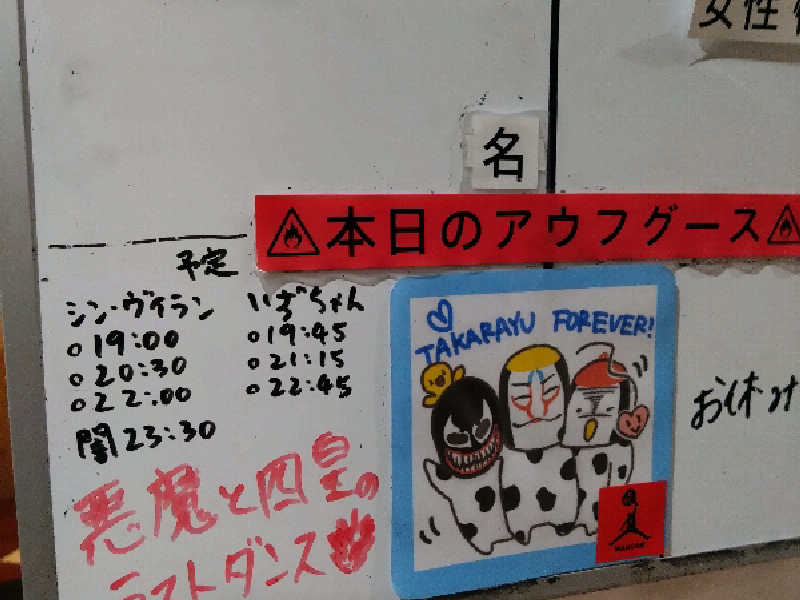 女性
名
本日のアウフグース
予定
シン・ヴィラン
○19:00
○20:30
○22:00
闇23:30
いぢちゃん
○19:45
○21:15
○22:45
悪魔と四皇の
ラストダンス
TAKARAYU FOREVER!
お休み